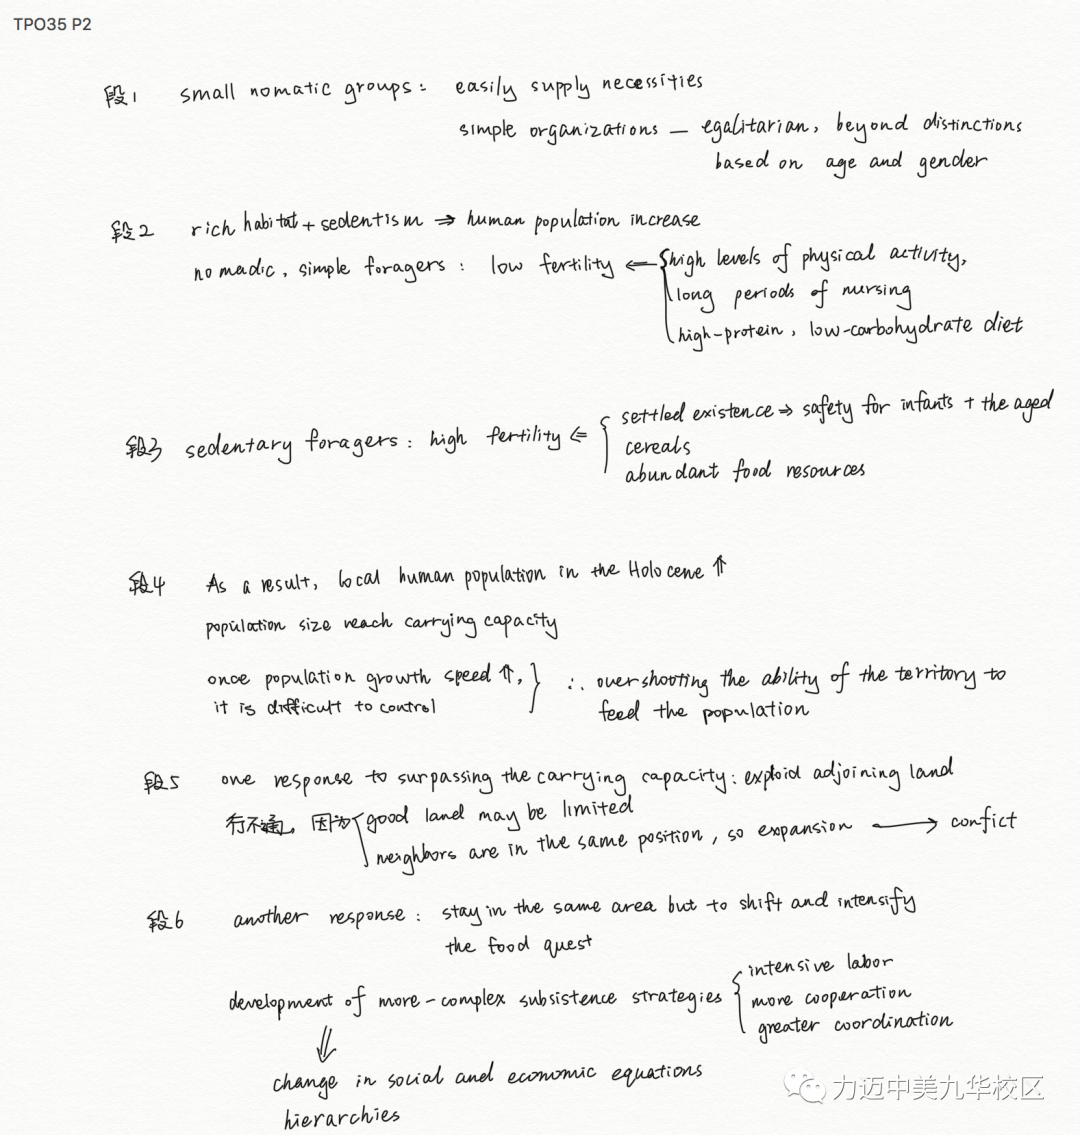 TPO35 P2
段1 small nomatic groups: easily supply necessities
simple organizations — egalitarian, beyond distinctions
based on age and gender
段2 rich habitat + sedentism ⇒ human population increase
nomadic, simple foragers: low fertility ⇐ { high levels of physical activity,
long periods of nursing
high-protein, low-carbohydrate diet
段3 sedentary foragers: high fertility ⇐ { settled existence ⇒ safety for infants + the aged
cereals
abundant food resources
段4 As a result, local human population in the Holocene ⇑
population size reach carrying capacity
once population growth speed ⇑, } ∴ overshooting the ability of the territory to
it is difficult to control
feed the population
段5 one response to surpassing the carrying capacity: exploid adjoining land
行不通。因为 { good land may be limited
neighbors are in the same position, so expansion → confict
段6 another response: stay in the same area but to shift and intensify
the food quest
development of more-complex subsistence strategies { intensive labor
more cooperation
greater coordination
⇓
change in social and economic equations
hierarchies
力迈中美九华校区